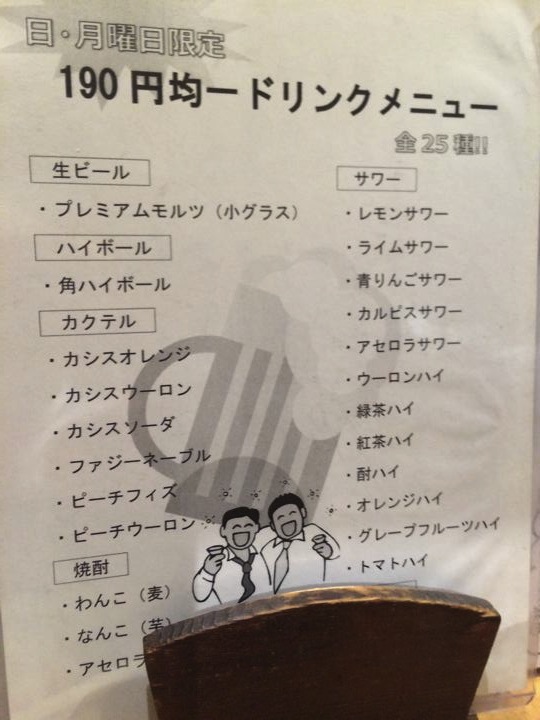 日・月曜日限定
190円均一ドリンクメニュー
全25種!!
生ビール
・プレミアムモルツ（小グラス）
ハイボール
・角ハイボール
カクテル
・カシスオレンジ
・カシスウーロン
・カシスソーダ
・ファジーネーブル
・ピーチフィズ
・ピーチウーロン
焼酎
・わんこ（麦）
・なんこ（芋）
・アセロラ
サワー
・レモンサワー
・ライムサワー
・青りんごサワー
・カルピスサワー
・アセロラサワー
・ウーロンハイ
・緑茶ハイ
・紅茶ハイ
・酎ハイ
・オレンジハイ
・グレープフルーツハイ
・トマトハイ